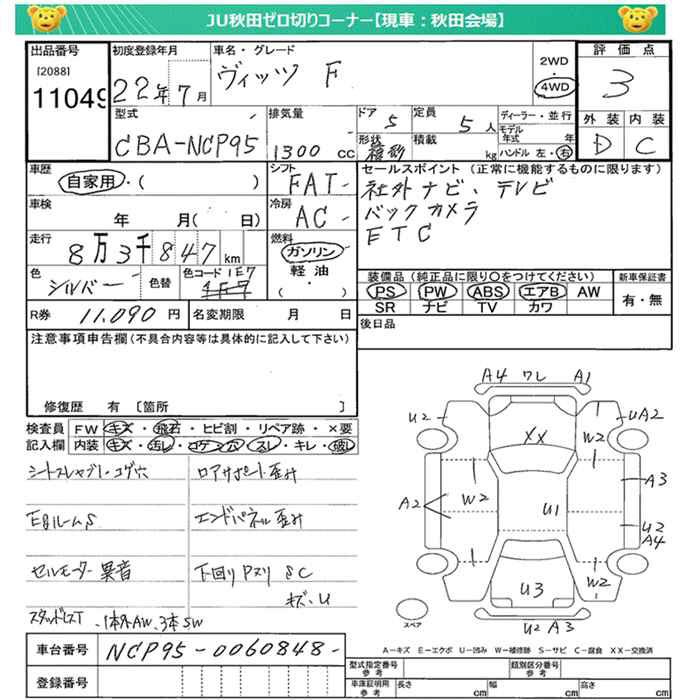 JU秋田ゼロ切りコーナー【現車：秋田会場】
出品番号
[2088]
11049
初度登録年月
22年7月
車名・グレード
ヴィッツ F
2WD
4WD
評価点
3
型式
CBA-NCP95
排気量
1300 CC
ドア
5
定員
5人
形状
積載
kg
ディーラー・並行
モデル年式
年
ハンドル 左・右
外装
内装
D
C
車歴
自家用・( )
シフト
FAT
セールスポイント (正常に機能するものに限ります)
社外ナビ、テレビ
バックカメラ
ETC
車検
年 月( 日)
冷房
AC
走行
8万3千847km
燃料
ガソリン
軽油
・( )
色
シルバー
色替
色コード 1E7
装備品 (純正品に限り○をつけてください)
新車保証書
PS PW ABS エアB AW
SR ナビ TV カワ
有・無
R券
11,090 円
名変期限
月 日
後日品
注意事項申告欄(不具合内容等は具体的に記入して下さい)
修復歴 有 [箇所 ]
検査員記入欄
FW キズ・飛石・ヒビ割・リペア跡・×要
内装 キズ・汚レ・コゲ・穴・スレ・キレ・破レ
シートスレヤブレ・コゲ穴
ロアサポート歪み
EgルームS
エンドパネル歪み
セルモーター異音
下回りPヌリ SC
キズ・U
スタッドレスT・1本外AW、3本SW
A4 ワレ A1
U2
UA2
XX
W2
A3
A2
W2
U1
U2
A4
W2
U3
U2 A3
スペア
A-キズ E-エクボ U-凹み W-補修跡 S-サビ C-腐食 XX-交換済
車台番号
NCP95-0060848-
登録番号
型式指定番号
参考
類別区分番号
参考
車庫証明用
参考
長さ cm
幅 cm
高さ cm